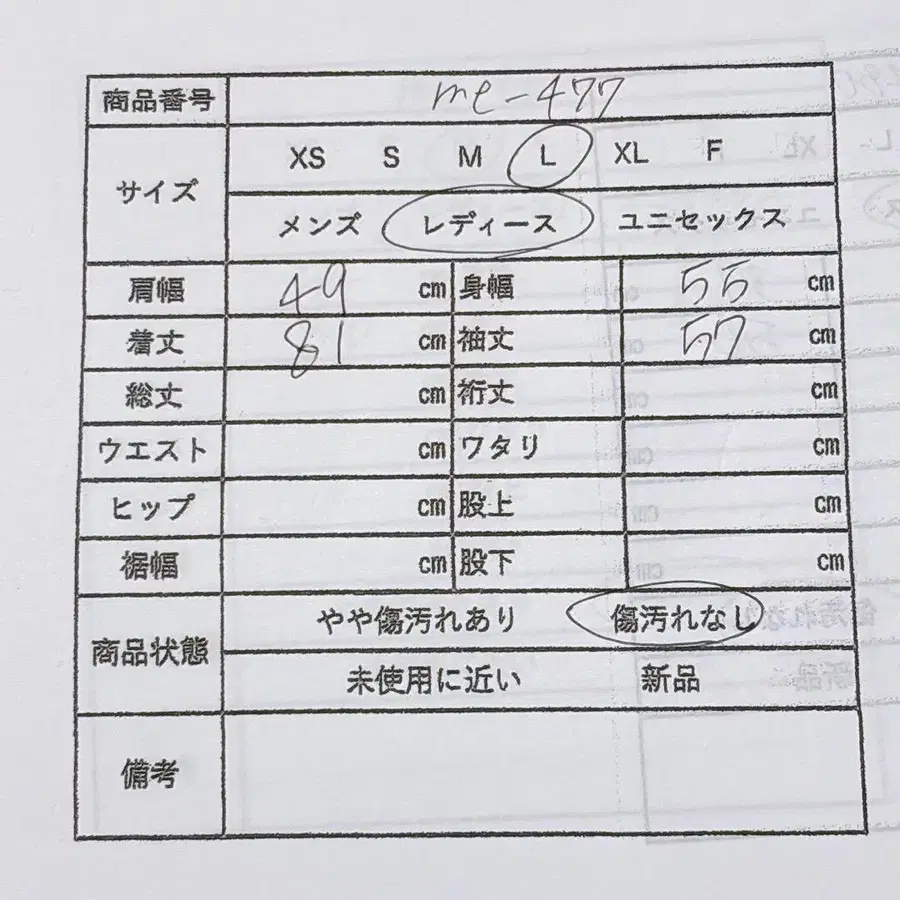 商品番号 me-477
サイズ XS S M L XL F
メンズ レディース ユニセックス
肩幅 49 cm 身幅 55 cm
着丈 81 cm 袖丈 57 cm
総丈 cm 裄丈 cm
ウエスト cm ワタリ cm
ヒップ cm 股上 cm
裾幅 cm 股下 cm
商品状態 やや傷汚れあり 傷汚れなし
未使用に近い 新品
備考